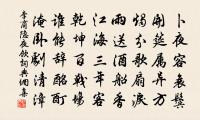 卜夜容衰鬢
開筵屬異方
燭分歌扇淚
雨送酒船香
江海三年客
乾坤百戰場
誰能辭酩酊
淹臥劇清漳
李商隱夜飲詞典網集